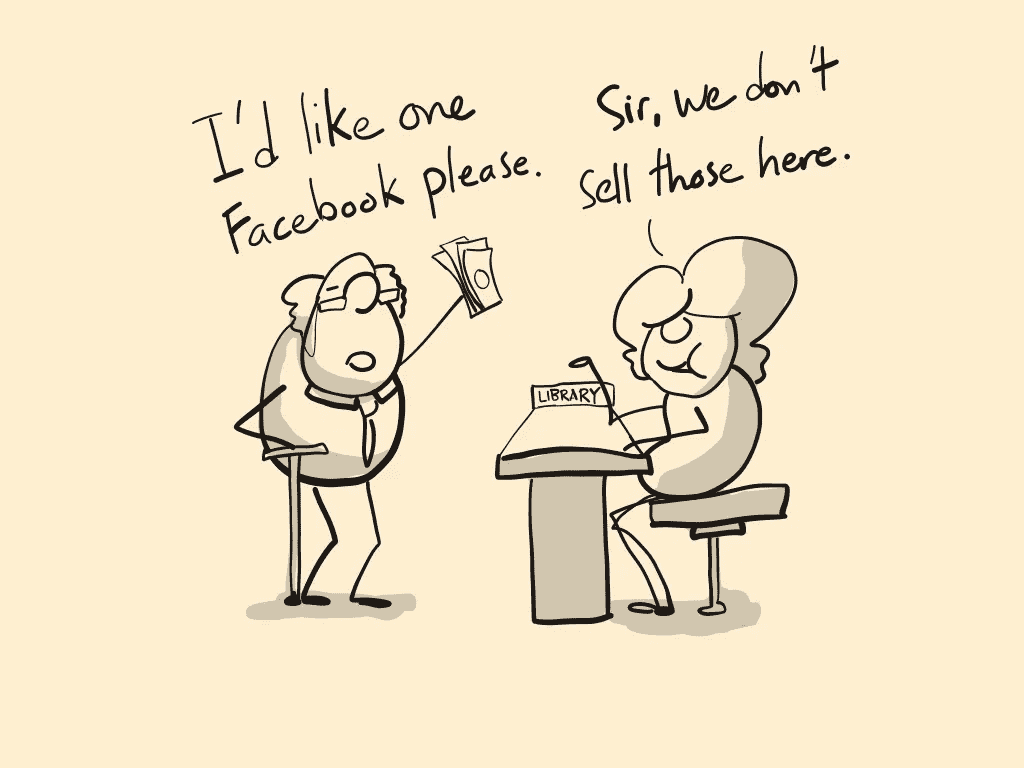 I'd like one
Facebook please.
Sir, we don't
sell those here.
LIBRARY